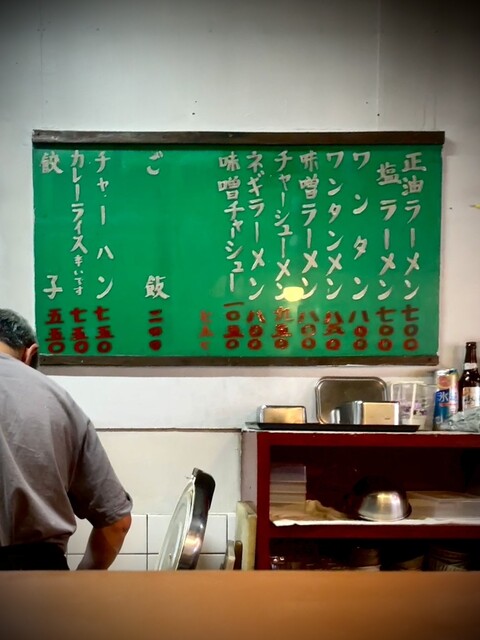 正油ラーメン 七〇〇
塩ラーメン 七〇〇
ワンタン 八〇〇
ワンタンメン 八五〇
味噌ラーメン 八〇〇
チャーシューメン 九五〇
ネギラーメン 八〇〇
味噌チャーシュー 一〇五〇
七五〇
ご飯 二〇〇
チャーハン 七五〇
カレーライス 辛いです 七五〇
餃子 五五〇
氷